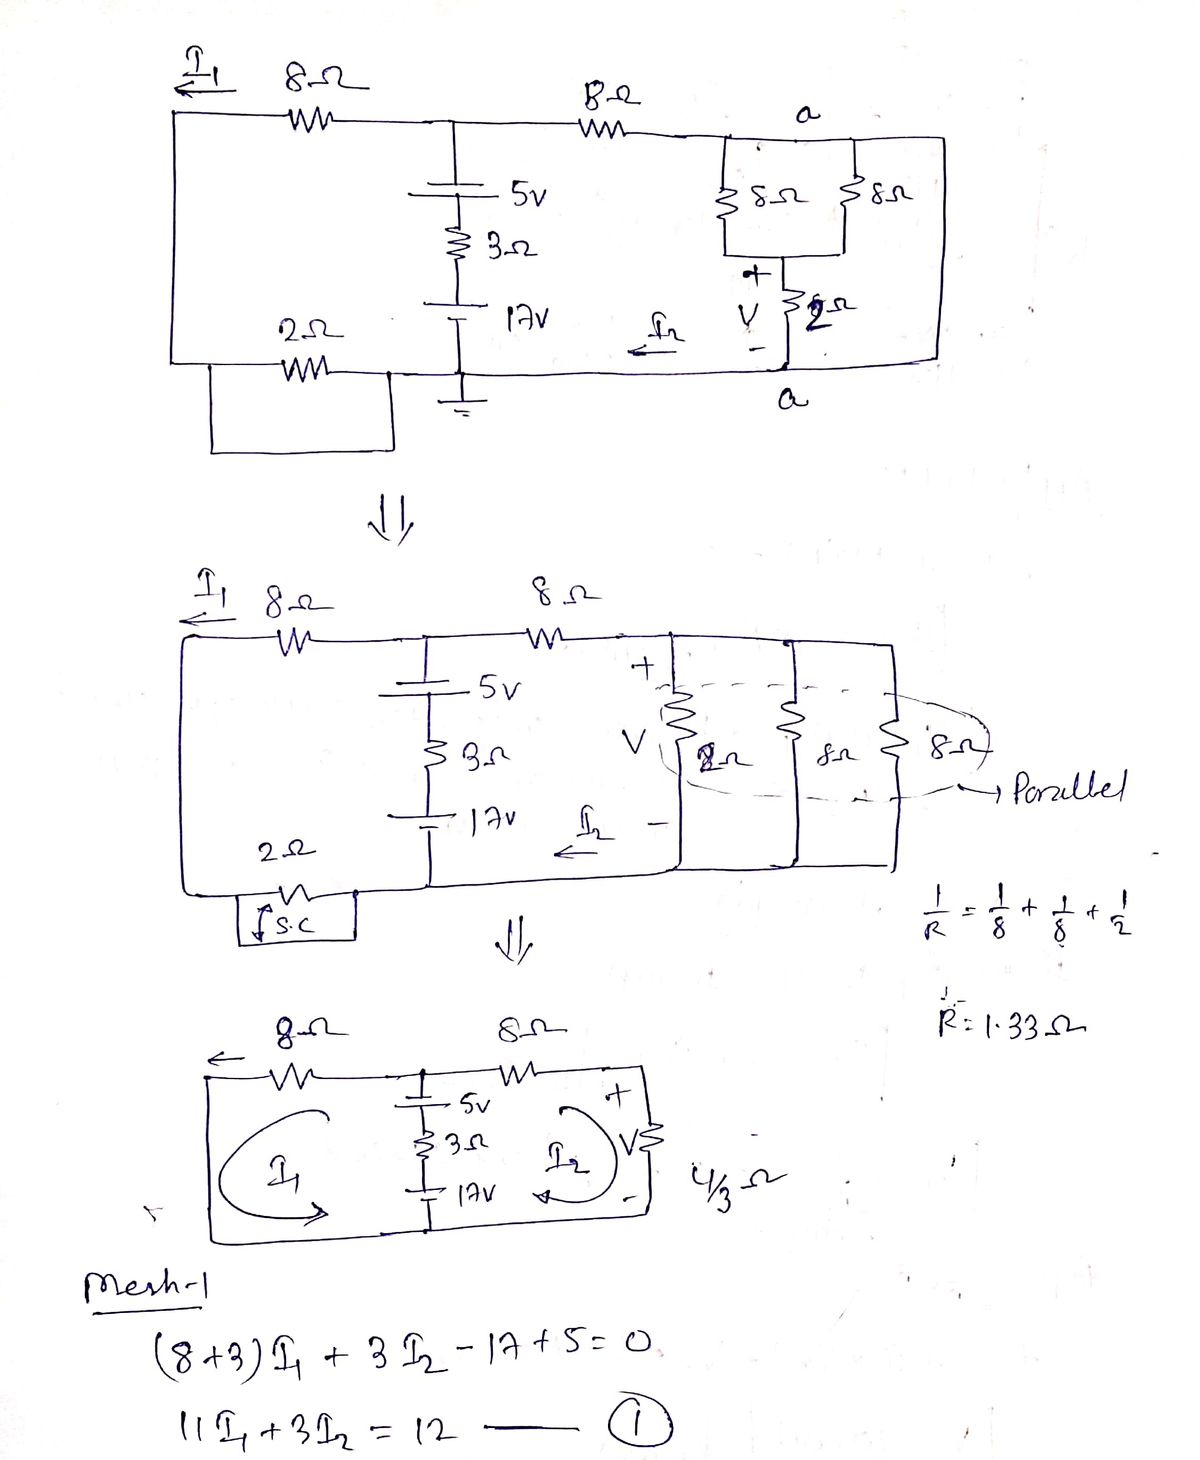 I₁ 8Ω 8Ω a
5v 8Ω 8Ω
3Ω
+
17V V 2Ω
2Ω I₂
-
a
⇓
I₁ 8Ω 8Ω
+
5v
3Ω V 2Ω 8Ω 8Ω
→ Parallel
17v I₂ -
2Ω
S.C
1/R = 1/8 + 1/8 + 1/2
⇓
R = 1.33Ω
8Ω 8Ω
+
5v
3Ω V
I₁ I₂ 4/3 Ω
17V -
Mesh-1
(8+3)I₁ + 3I₂ - 17 + 5 = 0
11I₁ + 3I₂ = 12 —— ①